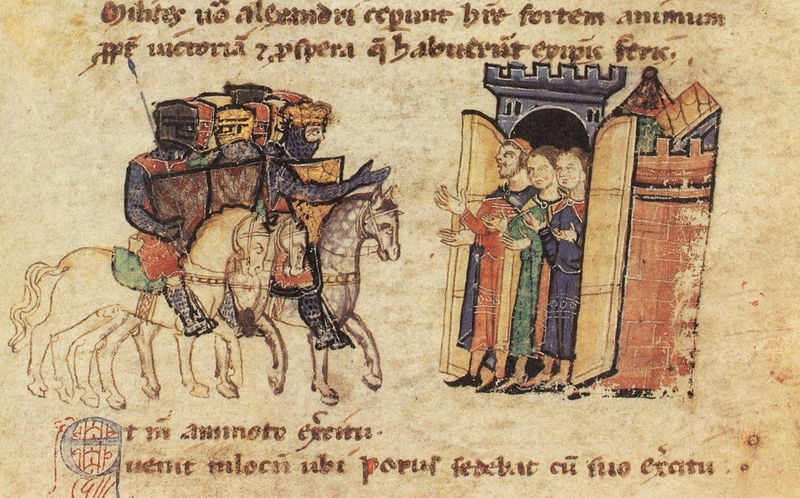 Milites u͞o alexandri ceꝑunt hr̄e fortem animum
ꝓpt̄ uictoriā ⁊ ꝓspera q̄ habuerūt
Et m̄ ammoto ex̄citu.
uenit in locū ubi porus sedebat cū suo ex̄citu.